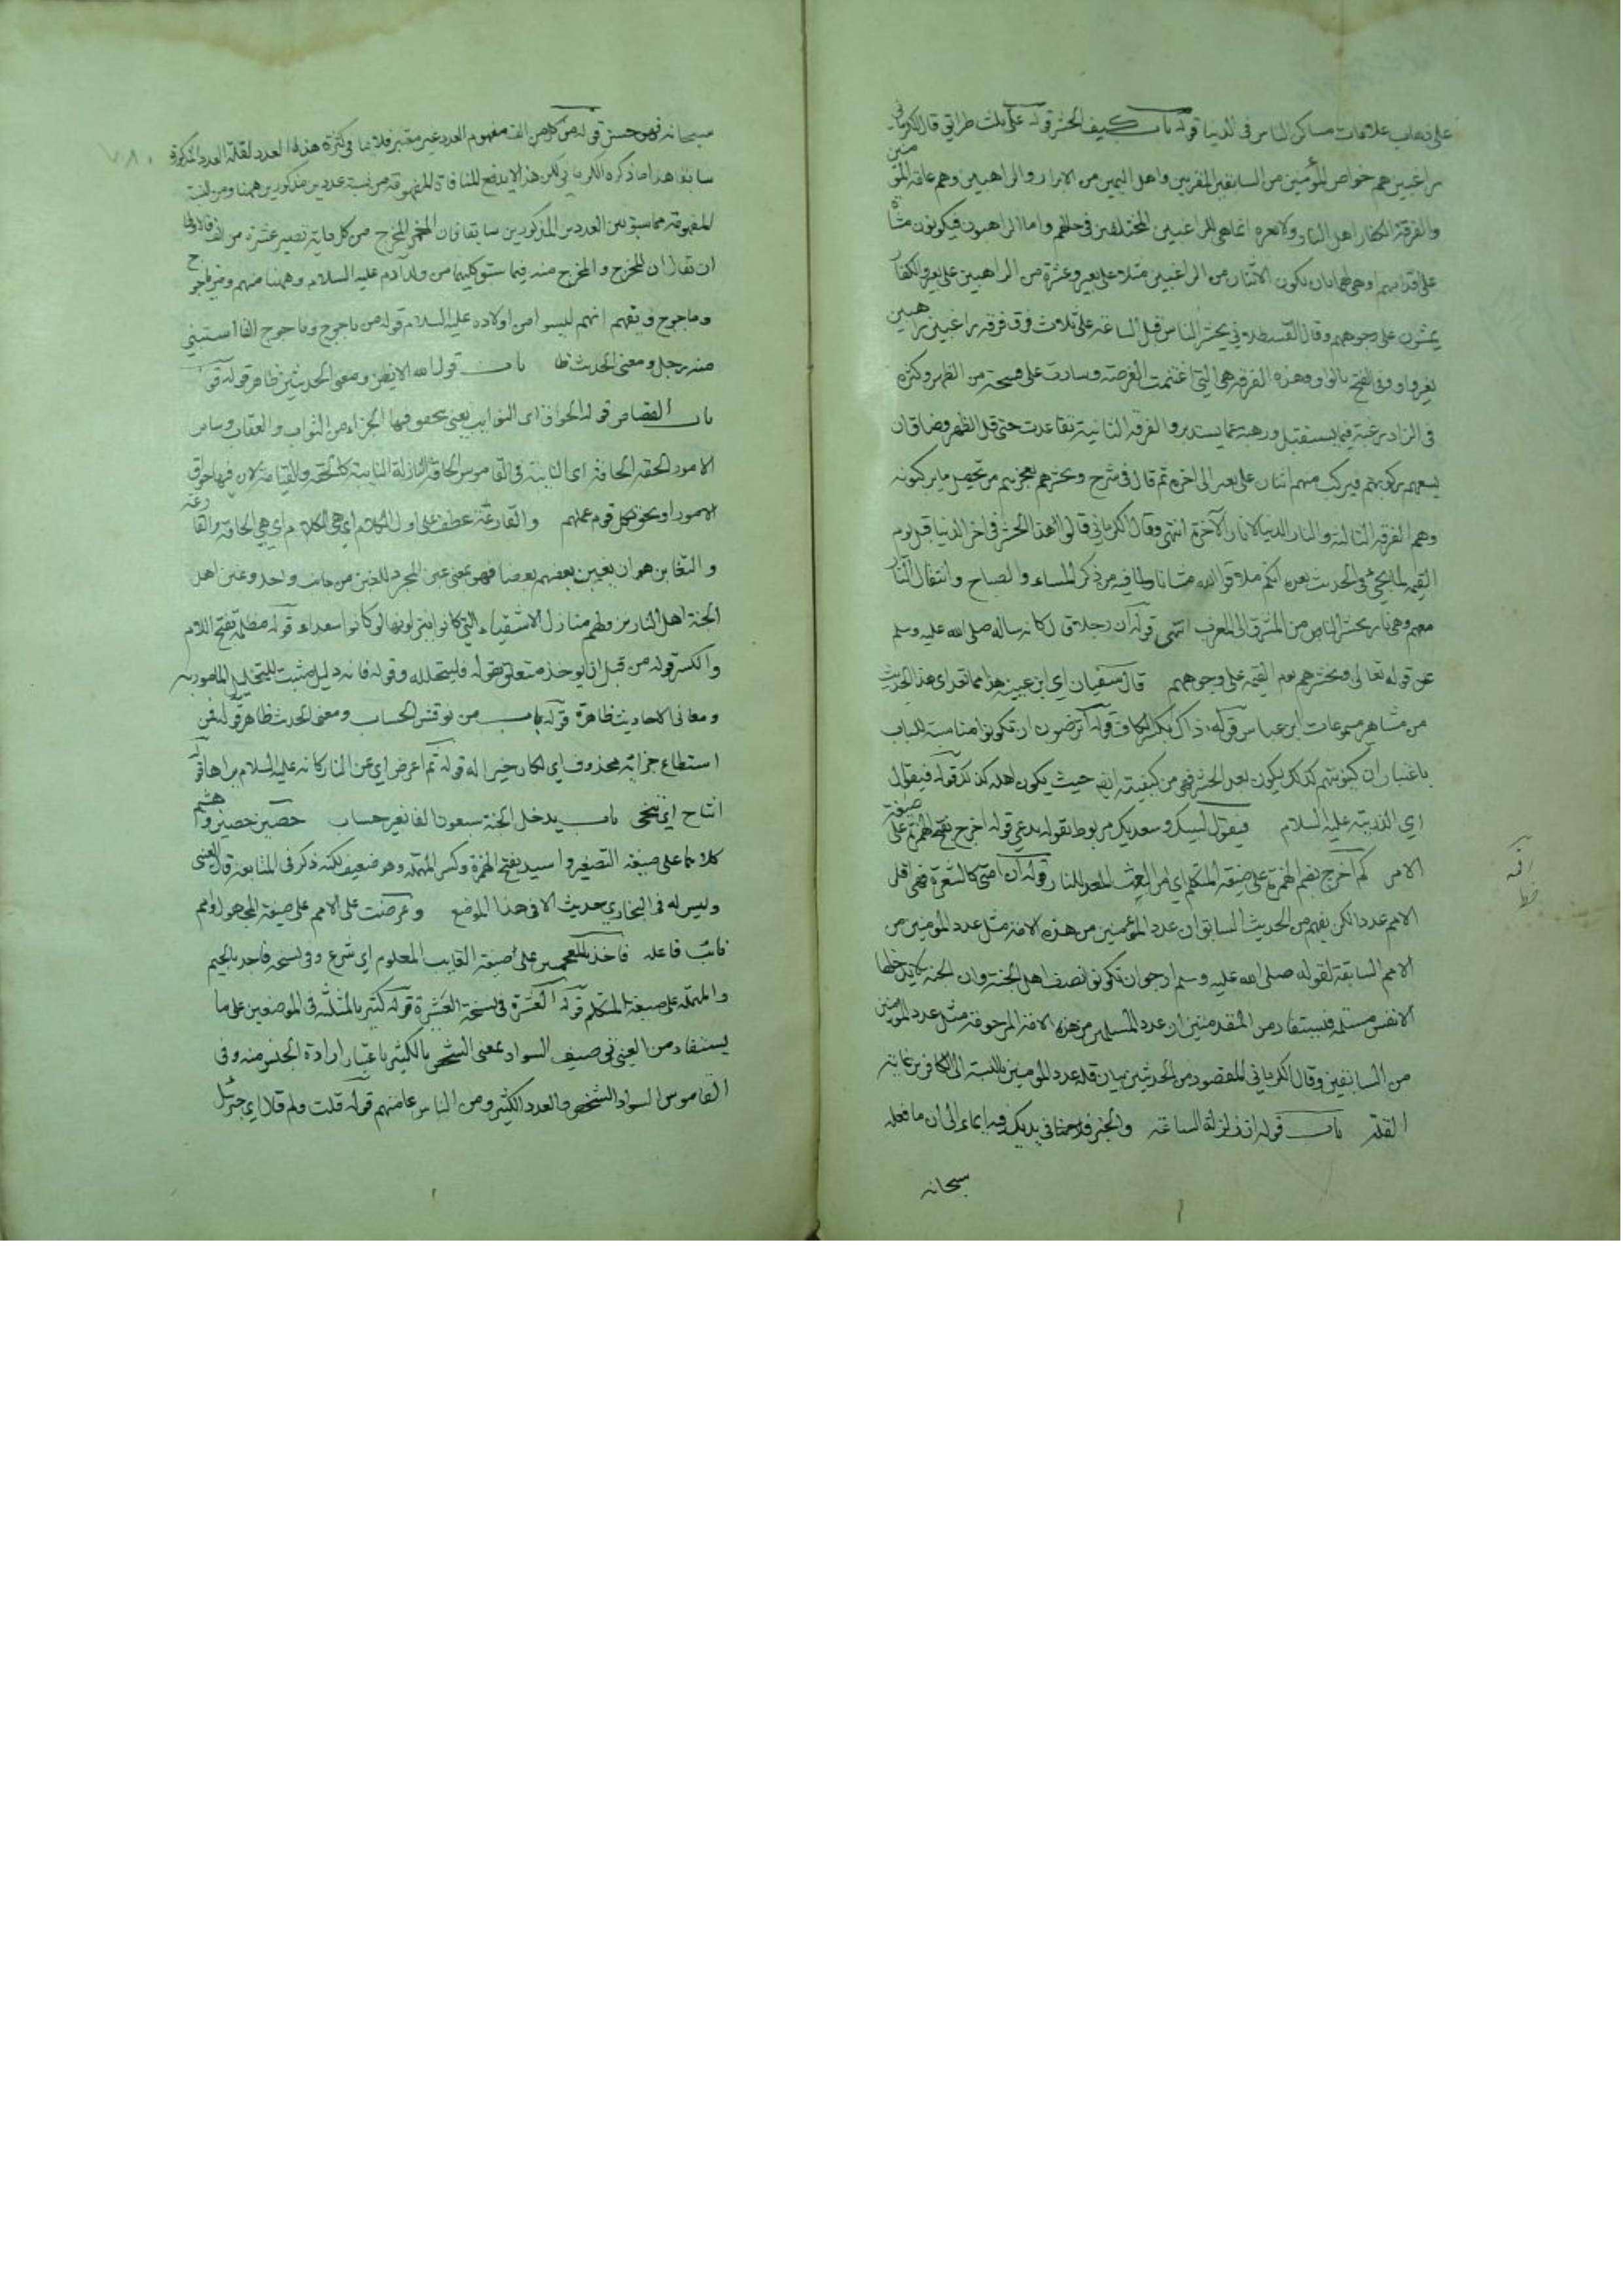 على ذهاب علامات مساكن الناس في الدنيا قوله باب كيف الحشر قوله على ثلث طرائق قال الكرماني
راغبين هم خواص المؤمنين من السابقين المقربين واهل اليمين من الابرار والراهبين وهم عامة المؤمنين
والفرقة الكفار اهل النار ولابعره انما هي للراغبين المختلفين في حالهم واما الراهبون فيكونون مشاة
على اقدامهم او هي لهما بان يكون الاثنان من الراغبين مثلا على بعير وعشرة من الراهبين على بعير والكفار
يمشون على وجوههم وقال القسطلاني يحشر الناس قبل الساعة على ثلاث فرق فرقة راغبين راهبين
بغير واو وفي الفتح بالواو وهذه الفرقة هي التي اغتنمت الفرصة وسارت على فسحة من الظهر وكثرة
في الزاد رغبة فيما يستقبل ورهبة عما يستدبر والفرقة الثانية تقاعدت حتى قل الظهر وضاق ان
يسعهم ركوبهم فيركب منهم اثنان على بعير الى اخره ثم قال في شرح وتحشرهم لعجزهم من تحصيل ما يركبونه
وهم الفرقة الثالثة والنار الدنيا لا نار الآخرة انتهى وقال الكرماني قالوا هذا الحشر في اخر الدنيا قبل يوم
القيمة لما يجئ في الحديث بعده انكم ملاقوا الله مشاة ولما فيه من ذكر المساء والصباح وانتقال النار
معهم وهي نار يحشر الناس من المشرق الى المغرب انتهى قوله ان رجلا قال كانه سأله صلى الله عليه وسلم
عن قوله تعالى ونحشرهم يوم القيمة على وجوههم قال سفيان اي ابن عيينة هذا مما نعد اي هذا الحديث
من مشاهير مسموعات ابن عباس قوله ذاك بكسر الكاف قوله اترضون ان تكونوا مناسبة للباب
باعتبار ان كينونتهم كذلك يكون بعد الحشر فهي من كيفيته حيث يكون اهله كذلك قوله فيقول
اي الذرية عليه السلام فيقول لبيك وسعديك مربوط بقوله يدعى قوله اخرج بفتح الهمزة على صيغة
الامر كم اخرج بضم الهمزة على صيغة المتكلم اي من البعث المعد للنار قوله ان امتي كالشعرة فهي اقل
الامم عددا لكن يفهم من الحديث السابق ان عدد المؤمنين من هذه الامة مثل عدد المؤمنين من
الامم السابقة لقوله صلى الله عليه وسلم ارجو ان تكونوا نصف اهل الجنة وان الجنة لا يدخلها
الا نفس مسلمة فيستفاد من المقدمتين ان عدد المسلمين من هذه الامة المرحومة مثل عدد المؤمنين
من السابقين وقال الكرماني المقصود من الحديثين بيان قلة عدد المؤمنين بالنسبة الى الكافرين غاية
القلة باب قوله ان زلزلة الساعة والخير في يديك فيه ايماء الى ان ما فعله
سبحانه
سبحانه فهو حسن قوله من كل من الف مفهوم العدد غير معتبر فلا ينافي كثرة هذا العدد لقلة العدد المذكورة
سابقا هذا ما ذكره الكرماني لكن هذا لا يدفع المنافاة المفهومة من نسبة عددين مذكورين ههنا ومن النسبة
المفهومة مما سبق بين العددين المذكورين سابقا فان المخرج من كل مائة تصير عشرة من الف فالاولى
ان يقال ان المخرج والمخرج منه فيما سبق كليهما من ولد آدم عليه السلام وههنا منهم ومن ياجوج
وماجوج ويفهم انهم ليسوا من اولاده عليه السلام قوله من ياجوج وماجوج الفا استثنى
منه رجل ومعنى الحديث ظا باب قول الله الا يظن ومعنى الحديثين ظاهر قوله
باب القصاص قوله الحواق اي النوايب يعني يحقق فيها الجزاء من الثواب والعقاب وساير
الامور الحقة الحاقة اي الثابتة في القاموس الحاقة النازلة الثابتة كالحقة والقيامة لان فيها حواق
الامور او يحق لكل قوم عملهم والقارعة عطف على اول الكلام اي هي الحاقة والقارعة
والتغابن هو ان يغبن بعضهم بعضا فهو بمعنى غبن المجرد للغبن من جانب واحد وغبن اهل
الجنة اهل النار نزولهم منازل الاشقياء التي كانوا ينزلونها لو كانوا سعداء قوله مظلمة بفتح اللام
والكسر قوله من قبل ان يوخذ متعلق بقوله فليتحلله وقوله فانه دليل مثبت للتحليل المامور به
ومعاني الاحاديث ظاهرة قوله باب من نوقش الحساب ومعنى الحديث ظاهر قوله فمن
استطاع جزائه محذوف اي لكان خيرا له قوله ثم اعرض اي عن النار كانه عليه السلام يراها قوله
اشاح اي تنحى باب يدخل الجنة سبعون الفا بغير حساب حصين حصين وهشيم
كلاهما على صيغة التصغير واسيد بفتح الهمزة وكسر المهملة وهو ضعيف لكنه ذكر في المتابعة قال العيني
وليس له في البخاري حديث الا في هذا الموضع وعرضت على الامم على صيغة المجهول والامم
نائب فاعله فاخذ بالمعجمتين على صيغة الغايب المعلوم اي شرع وفي نسخة فاجد بالجيم
والمهملة على صيغة المتكلم قوله العشرة في نسخة العشيرة قوله كثير بالمثلثة في الموضعين على ما
يستفاد من العيني وصف السواد بمعنى الشخص بالكثير باعتبار ارادة الجنس منه وفي
القاموس السواد الشخص والعدد الكثير ومن الناس عامتهم قوله قلت ولم قلا اي جبرئيل